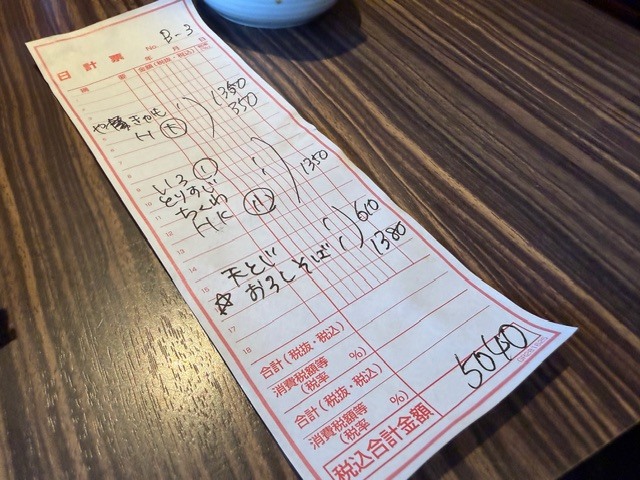 B-3
日計票
No.
年 月 日
摘要 金額(税抜・税込)
1350
や きゃべ
350
H 大
いろ 1
とりすじ
1350
ちくわ
HK 小
天とじ 610
☆ おろしそば 1380
14
15
17
18
合計(税抜・税込)
消費税額等
(税率 %)
合計(税抜・税込)
消費税額等
(税率 %)
税込合計金額 5040